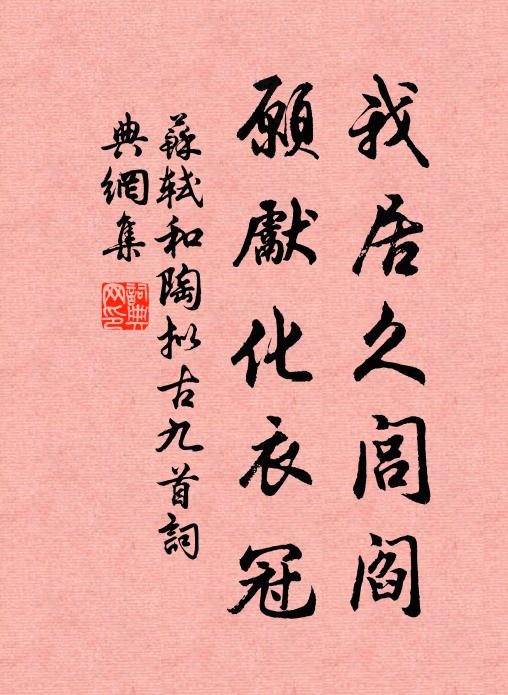 我居久閭閻
願獻化衣冠
蘇軾和陶拟古九首詞
典網集
詞典
网印